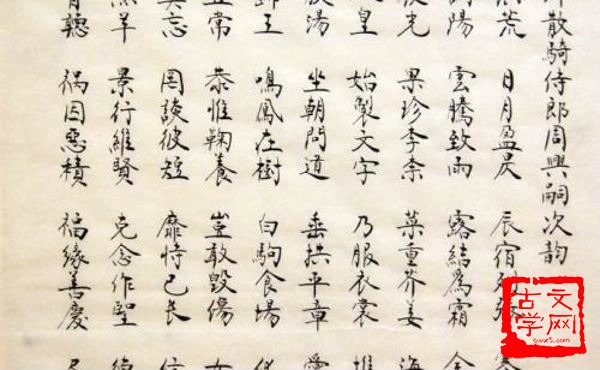 散騎侍郎周興嗣次韵
荒 日月盈昃 辰宿
陽 雲騰致雨 露結為霜
光 果珍李柰 菜重芥姜 海
皇 始製文字 乃服衣裳
湯 坐朝問道 垂拱平章
王 鳴鳳在樹 白駒食場
常 恭惟鞠養 豈敢毀傷 女
忘 罔談彼短 靡恃己長
羊 景行維賢 克念作聖
聽 禍因惡積 福緣善慶
古文
学网